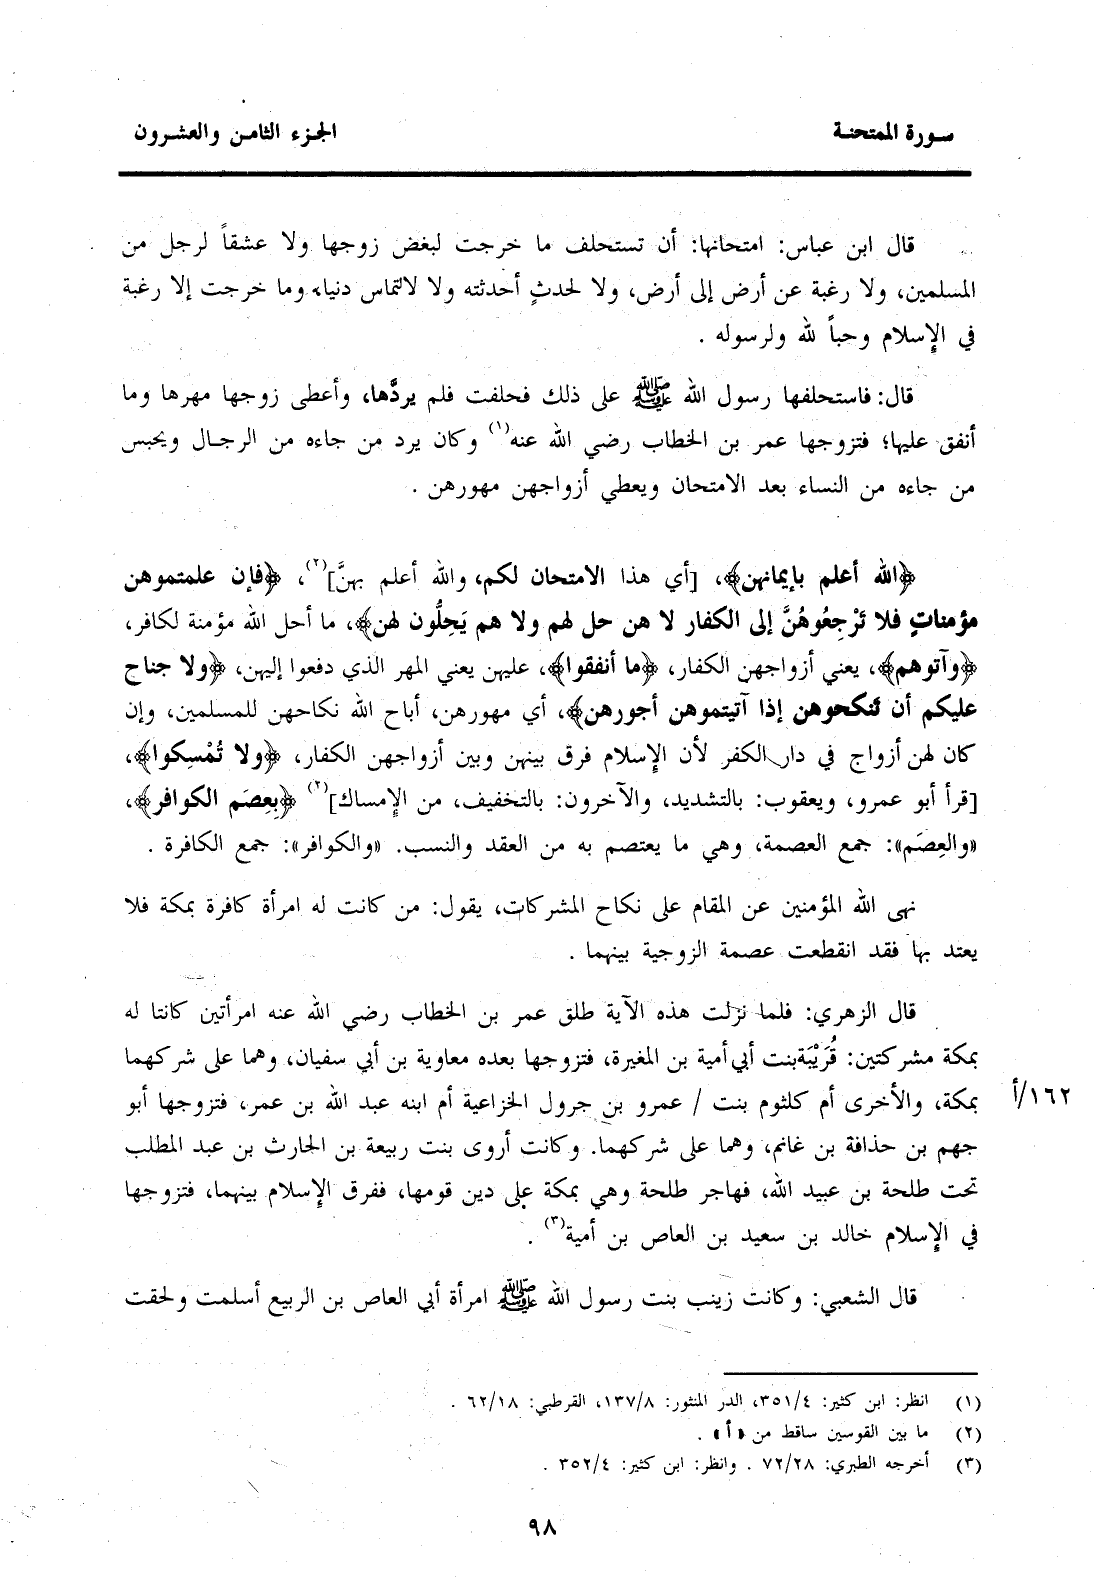 سورة الممتحنة
الجزء الثامن والعشرون
قال ابن عباس: امتحانها: أن تستحلف ما خرجت لبغض زوجها ولا عشقاً لرجل من
المسلمين، ولا رغبة عن أرض إلى أرض، ولا لحدثٍ أحدثته ولا لالتماس دنياء وما خرجت إلا رغبة
في الإسلام وحباً لله ولرسوله .
قال: فاستحلفها رسول الله ﷺ على ذلك فحلفت فلم يردَّها، وأعطى زوجها مهرها وما
أنفق عليها؛ فتزوجها عمر بن الخطاب رضي الله عنه(١) وكان يرد من جاءه من الرجال ويحبس
من جاءه من النساء بعد الامتحان ويعطي أزواجهن مهورهن .
﴿الله أعلم بإيمانهن﴾، [أي هذا الامتحان لكم، والله أعلم بهنَّ](٢)، ﴿فإن علمتموهن
مؤمناتٍ فلا تَرْجِعُوهُنَّ إلى الكفار لا هن حل لهم ولا هم يَحِلُّون لهن﴾، ما أحل الله مؤمنة لكافر،
﴿وآتوهم﴾، يعني أزواجهن الكفار، ﴿ما أنفقوا﴾، عليهن يعني المهر الذي دفعوا إليهن، ﴿ولا جناح
عليكم أن تنكحوهن إذا آتيتموهن أجورهن﴾، أي مهورهن، أباح الله نكاحهن للمسلمين، وإن
كان لهن أزواج في دار الكفر لأن الإسلام فرق بينهن وبين أزواجهن الكفار، ﴿ولا تُمْسِكوا﴾،
[قرأ أبو عمرو، ويعقوب: بالتشديد، والآخرون: بالتخفيف، من الإمساك](٢) ﴿بِعِصَم الكوافر﴾،
«والعِصَم»: جمع العصمة، وهي ما يعتصم به من العقد والنسب. «والكوافر»: جمع الكافرة .
نهى الله المؤمنين عن المقام على نكاح المشركات، يقول: من كانت له امرأة كافرة بمكة فلا
يعتد بها فقد انقطعت عصمة الزوجية بينهما .
قال الزهري: فلما نزلت هذه الآية طلق عمر بن الخطاب رضي الله عنه امرأتين كانتا له
بمكة مشركتين: قُرَيْبَة بنت أبي أمية بن المغيرة، فتزوجها بعده معاوية بن أبي سفيان، وهما على شركهما
بمكة، والأخرى أم كلثوم بنت / عمرو بن جرول الخزاعية أم ابنه عبد الله بن عمر، فتزوجها أبو
١٦٢/أ
جهم بن حذافة بن غانم، وهما على شركهما. وكانت أروى بنت ربيعة بن الحارث بن عبد المطلب
تحت طلحة بن عبيد الله، فهاجر طلحة وهي بمكة على دين قومها، ففرق الإسلام بينهما، فتزوجها
في الإسلام خالد بن سعيد بن العاص بن أمية(٣) .
قال الشعبي: وكانت زينب بنت رسول الله ﷺ امرأة أبي العاص بن الربيع أسلمت ولحقت
(١) انظر: ابن كثير: ٣٥١/٤، الدر المنثور: ١٣٧/٨، القرطبي: ٦٢/١٨ .
(٢) ما بين القوسين ساقط من «أ» .
(٣) أخرجه الطبري: ٧٢/٢٨ . وانظر: ابن كثير: ٣٥٢/٤ .
٩٨